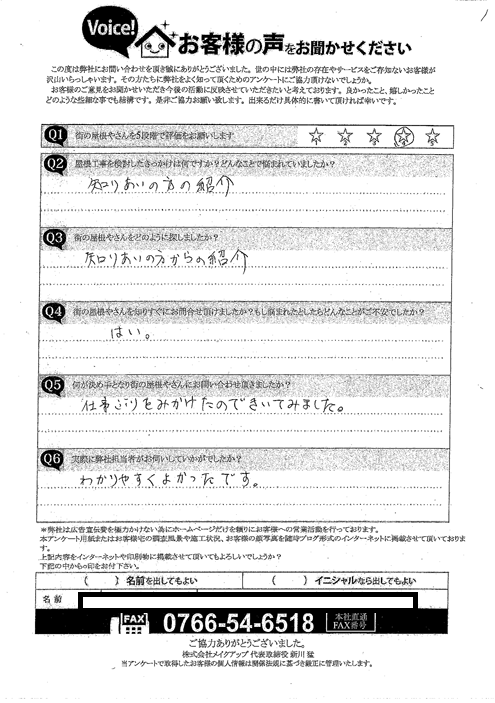 Voice!
お客様の声をお聞かせください
この度は弊社にお問い合わせを頂き誠にありがとうございました。世の中には弊社の存在やサービスをご存知ないお客様が
沢山いらっしゃいます。その方たちに弊社をよく知って頂くためのアンケートにご協力頂けないでしょうか。
お客様のご意見をお聞かせいただき今後の活動に反映させていただきたいと考えております。良かったこと、嬉しかったこと
どのような些細な事でも結構です。是非ご協力お願い致します。出来るだけ具体的に書いて頂ければ幸いです。
Q1 街の屋根やさんを5段階で評価をお願いします
Q2 屋根工事を検討したきっかけは何ですか?どんなことで悩まれていましたか?
知りあいの方の紹介
Q3 街の屋根やさんをどのように探しましたか?
知りあいの方からの紹介
Q4 街の屋根やさんを知りすぐにお問合せ頂けましたか?もし悩まれたとしたらどんなことがご不安でしたか?
はい。
Q5 何が決め手となり街の屋根やさんにお問い合わせ頂きましたか?
仕事ぶりをみかけたのできいてみました。
Q6 実際に弊社担当者がお伺いしていかがでしたか?
わかりやすくよかったです。
※弊社は広告宣伝費を極力かけない為にホームページだけを頼りにお客様への営業活動を行っております。
本アンケート用紙またはお客様宅の調査風景や施工状況、お客様の顔写真を随時ブログ形式のインターネットに掲載させて頂いておりま
す。
上記内容をインターネットや印刷物に掲載させて頂いてもよろしいでしょうか?
下記の中から○印をお付け下さい。
( )名前を出してもよい ( )イニシャルなら出してもよい
名前
FAX 0766-54-6518 本社直通
FAX番号
ご協力ありがとうございました。
株式会社メイクアップ 代表取締役 新川 猛
当アンケートで取得したお客様の個人情報は関係法規に基づき厳正に管理いたします。